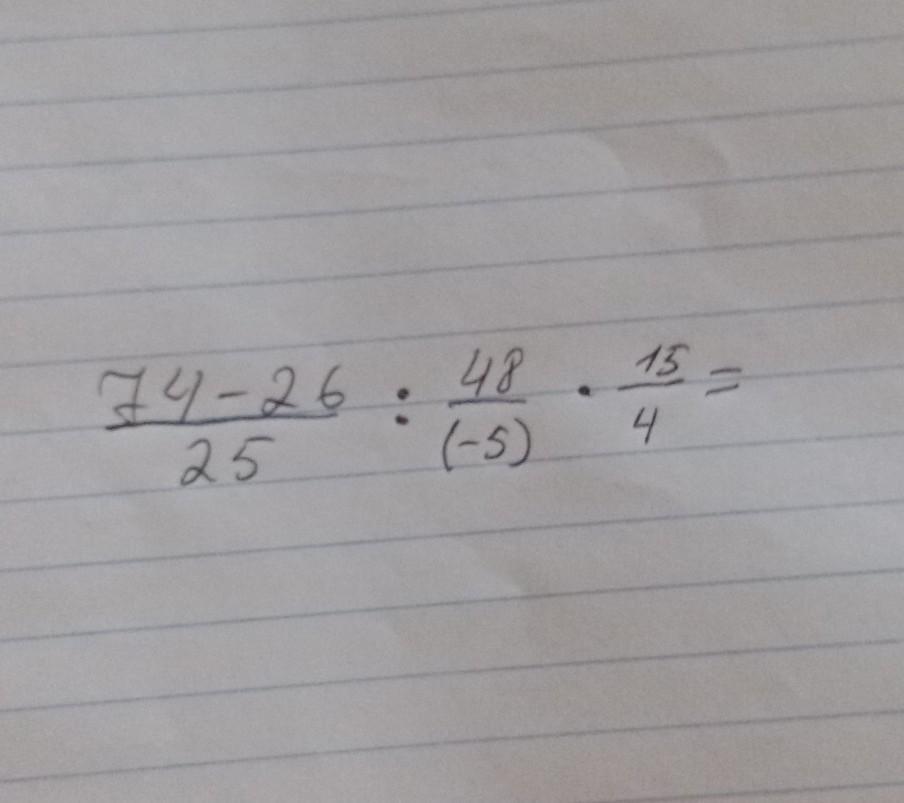 74-26/25 : 48/(-5) · 15/4 =